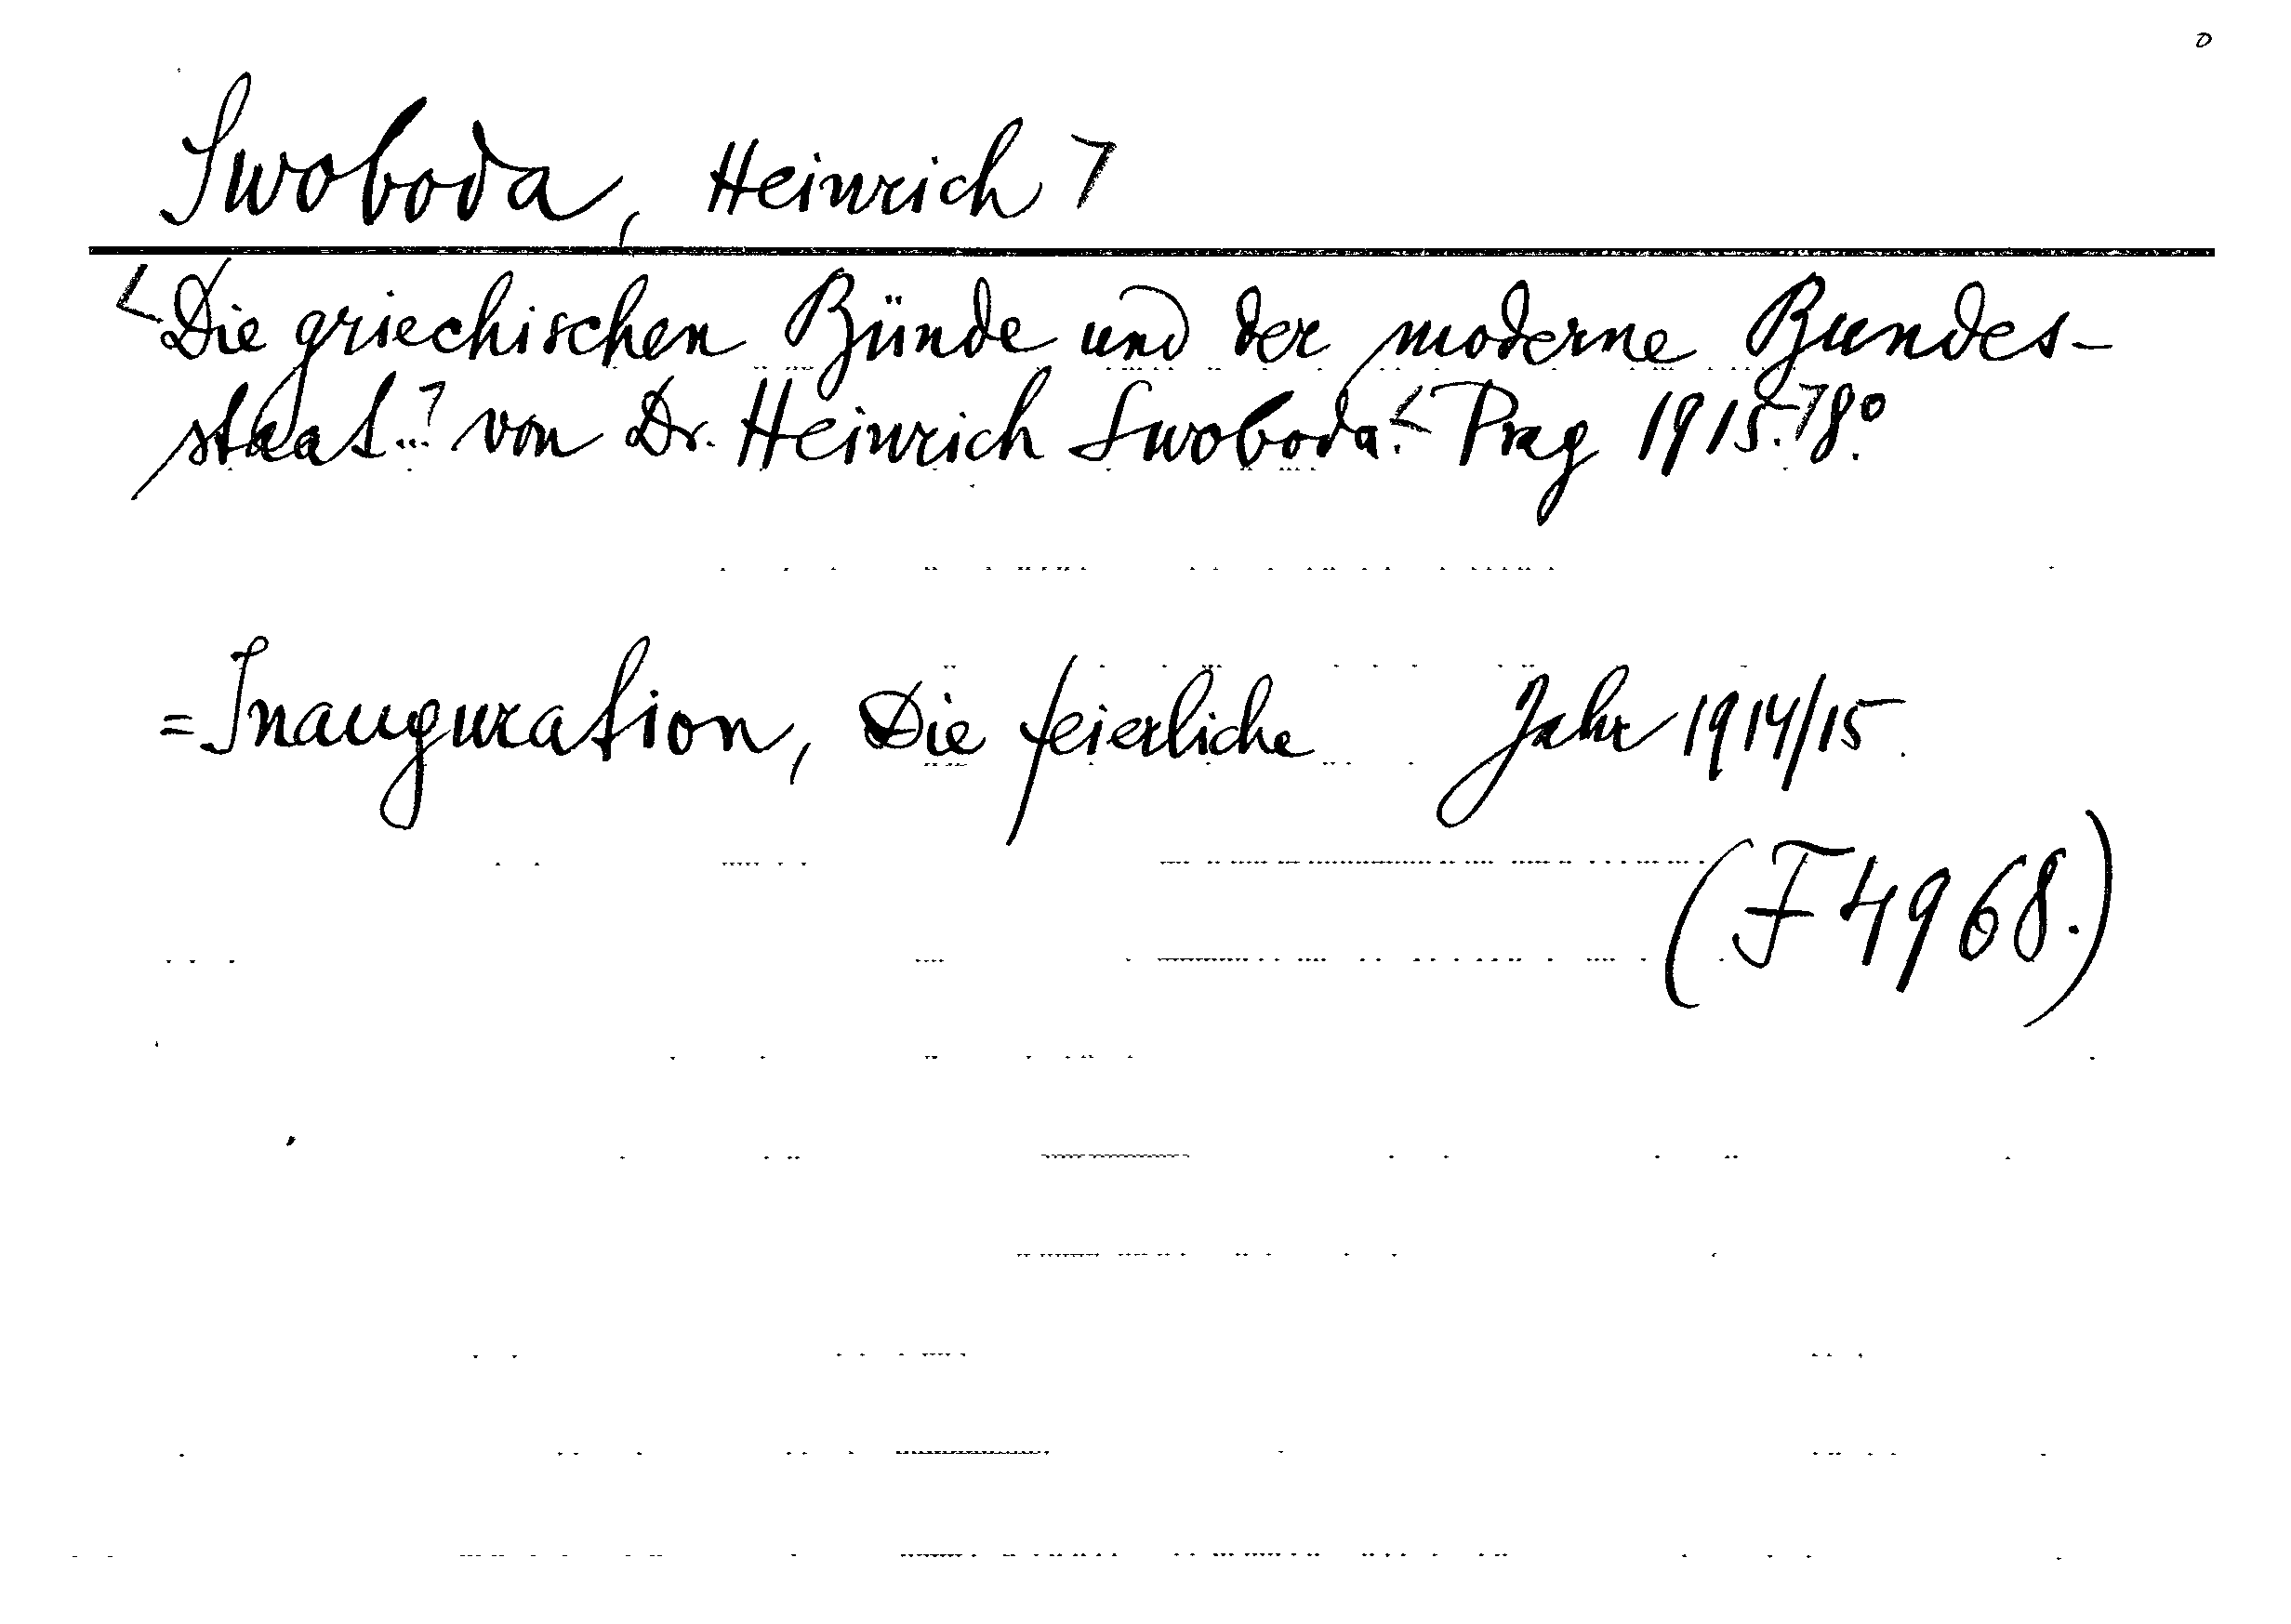 o
Swoboda, Heinrich ⁊
<Die griechischen Bünde und der moderne Bundes-
staat...⁊ von Dr. Heinrich Swoboda.< Prag 1915.⁊ 8°.
=Inauguration, Die feierliche Jahr 1914/15.
(F 4968.)